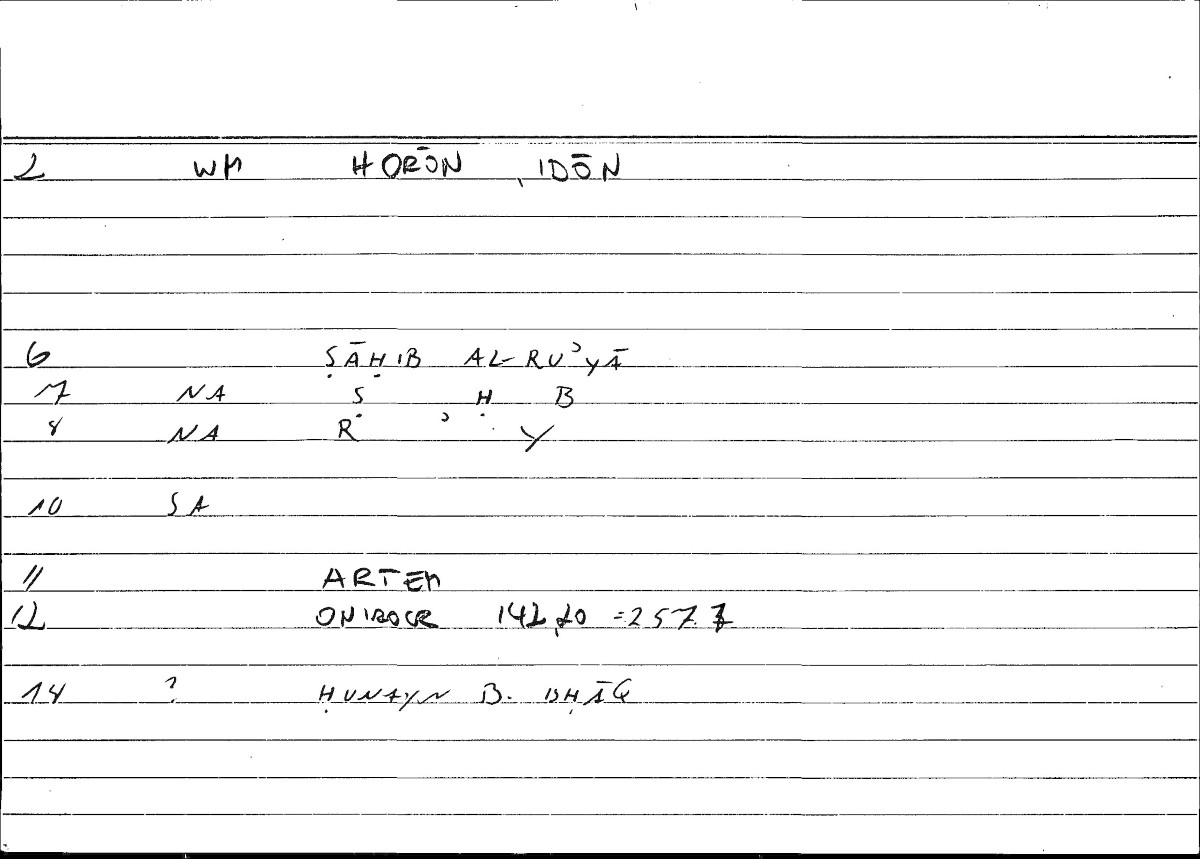 2 WM HORŌN , IDŌN
6 ṢĀḤIB AL-RUʾYĀ
7 NA Ṣ Ḥ B
8 NA R ʾ Y
10 SA
11 ARTEM
12 ONIROCR 142,20 =257.7
14 ? ḤUNAYN B. ISḤĀQ